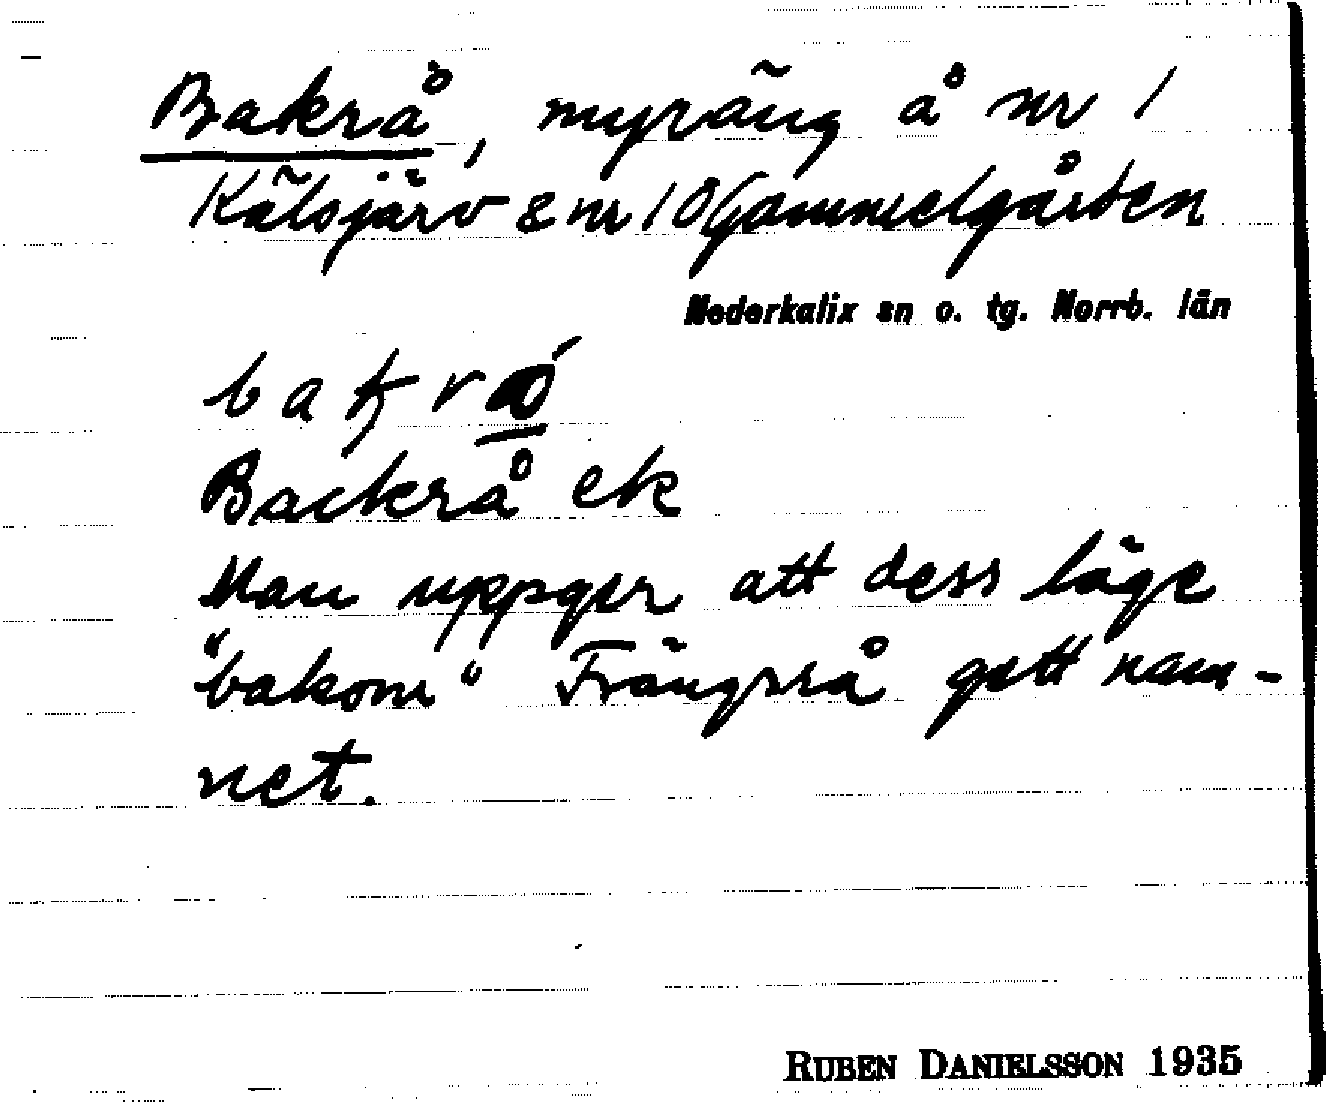 Bakrå, myräng å nr 1
Kälsjärv & nr 10 Gammelgården
Nederkalix sn o. tg. Norrb. län
Backrå ek
Man uppger att dess läge
"bakom" Frängsrå gett nam-
net.
RUBEN DANIELSSON 1935